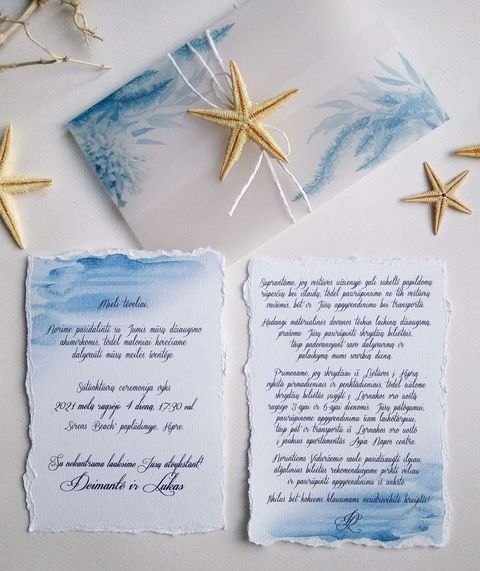 Mieli tėveliai,
Norime pasidalinti su Jumis mūsų džiaugsmo
akimirkomis, todėl maloniai kviečiame
dalyvauti mūsų meilės šventėje.
Sutuoktuvių ceremonija vyks
2021 metų rugsėjo 4 dieną, 17:30 val
Sirens Beach paplūdimyje, Kipre.
Su nekantrumu lauksime Jūsų atvykstant!
Deimantė ir Lukas
Suprantame, jog vestuvės užsienyje gali sukelti papildomų
rūpesčių bei išlaidų, todėl pasirūpinsime ne tik vestuvių
vaišėmis, bet ir Jūsų apgyvendinimu bei transportu.
Kadangi materialinės dovanos teikia laikiną džiaugsmą,
prašome Jūsų pasirūpinti skrydžių bilietais,
taip padovanojant savo dalyvavimą ir
palaikymą mums svarbią dieną.
Primename, jog skrydžiai iš Lietuvos į Kiprą
vyksta pirmadieniais ir penktadieniais, todėl siūlome
skrydžių bilietus įsigyti į Larnakos oro uostą
rugsėjo 3-ąjai ir 6-ąjai dienoms. Jūsų patogumui,
pasirūpinome apgyvendinimu šiam laikotarpiui,
taip pat ir transportu iš Larnakos oro uosto
į jaukius apartamentus Agia Napos centre.
Norintiems Viduržemio saule pasidžiaugti ilgiau,
atgalinius bilietus rekomenduojame pirkti vėliau
ir pasirūpinti apgyvendinimu iš anksto.
Iškilus bet kokiems klausimams nesidrovėkite kreiptis!